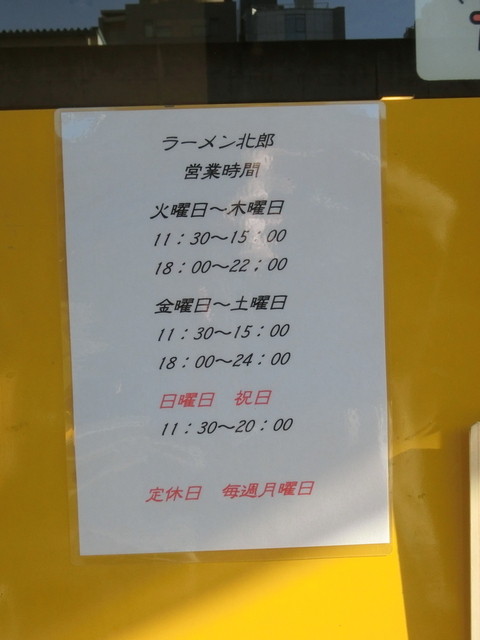 ラーメン北郎
営業時間
火曜日～木曜日
11：30～15：00
18：00～22：00
金曜日～土曜日
11：30～15：00
18：00～24：00
日曜日　祝日
11：30～20：00
定休日　毎週月曜日